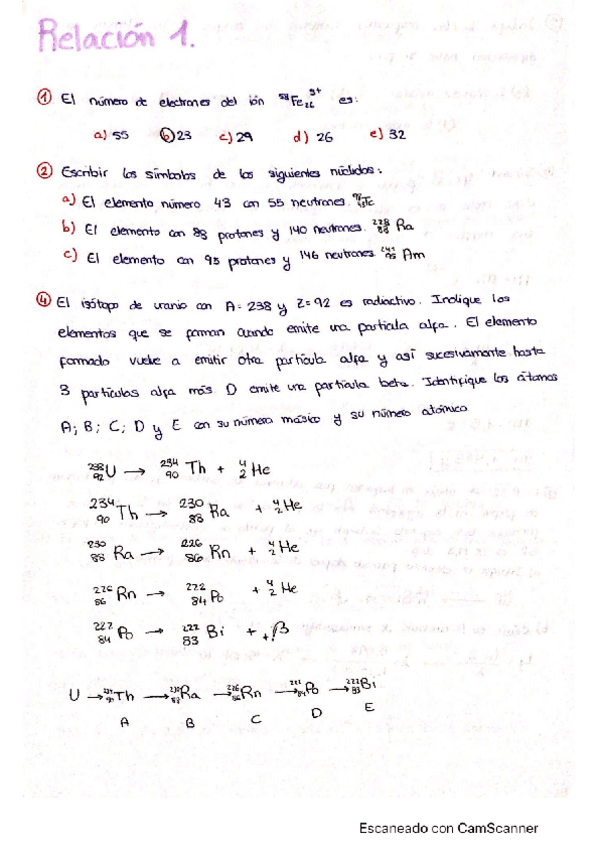 Relación 1.
① El número de electrones del ión ⁵⁸Fe₂₆³⁺ es:
a) 55 b) 23 c) 29 d) 26 e) 32
② Escribir los símbolos de los siguientes núclidos:
a) El elemento número 43 con 55 neutrones. ⁹⁸₄₃Tc
b) El elemento con 88 protones y 140 neutrones. ²²⁸₈₈ Ra
c) El elemento con 95 protones y 146 neutrones ²⁴¹₉₅ Am
④ El isótopo de uranio con A=238 y Z=92 es radiactivo. Indique los
elementos que se forman cuando emite una partícula alfa. El elemento
formado vuelve a emitir otra partícula alfa y así sucesivamente hasta
3 partículas alfa más. D emite una partícula beta. Identifique los átomos
A; B; C; D y E con su número másico y su número atómico
²³⁸₉₂U → ²³⁴₉₀ Th + ⁴₂He
²³⁴₉₀ Th → ²³⁰₈₈ Ra + ⁴₂He
²³⁰₈₈ Ra → ²²⁶₈₆ Rn + ⁴₂He
²²⁶₈₆ Rn → ²²²₈₄ Po + ⁴₂He
²²²₈₄ Po → ²²²₈₃ Bi + ₊₁β
U → ²³⁴₉₀Th → ²³⁰₈₈Ra → ²²⁶₈₆Rn → ²²²₈₄Po → ²²²₈₃Bi
A B C D E
Escaneado con CamScanner